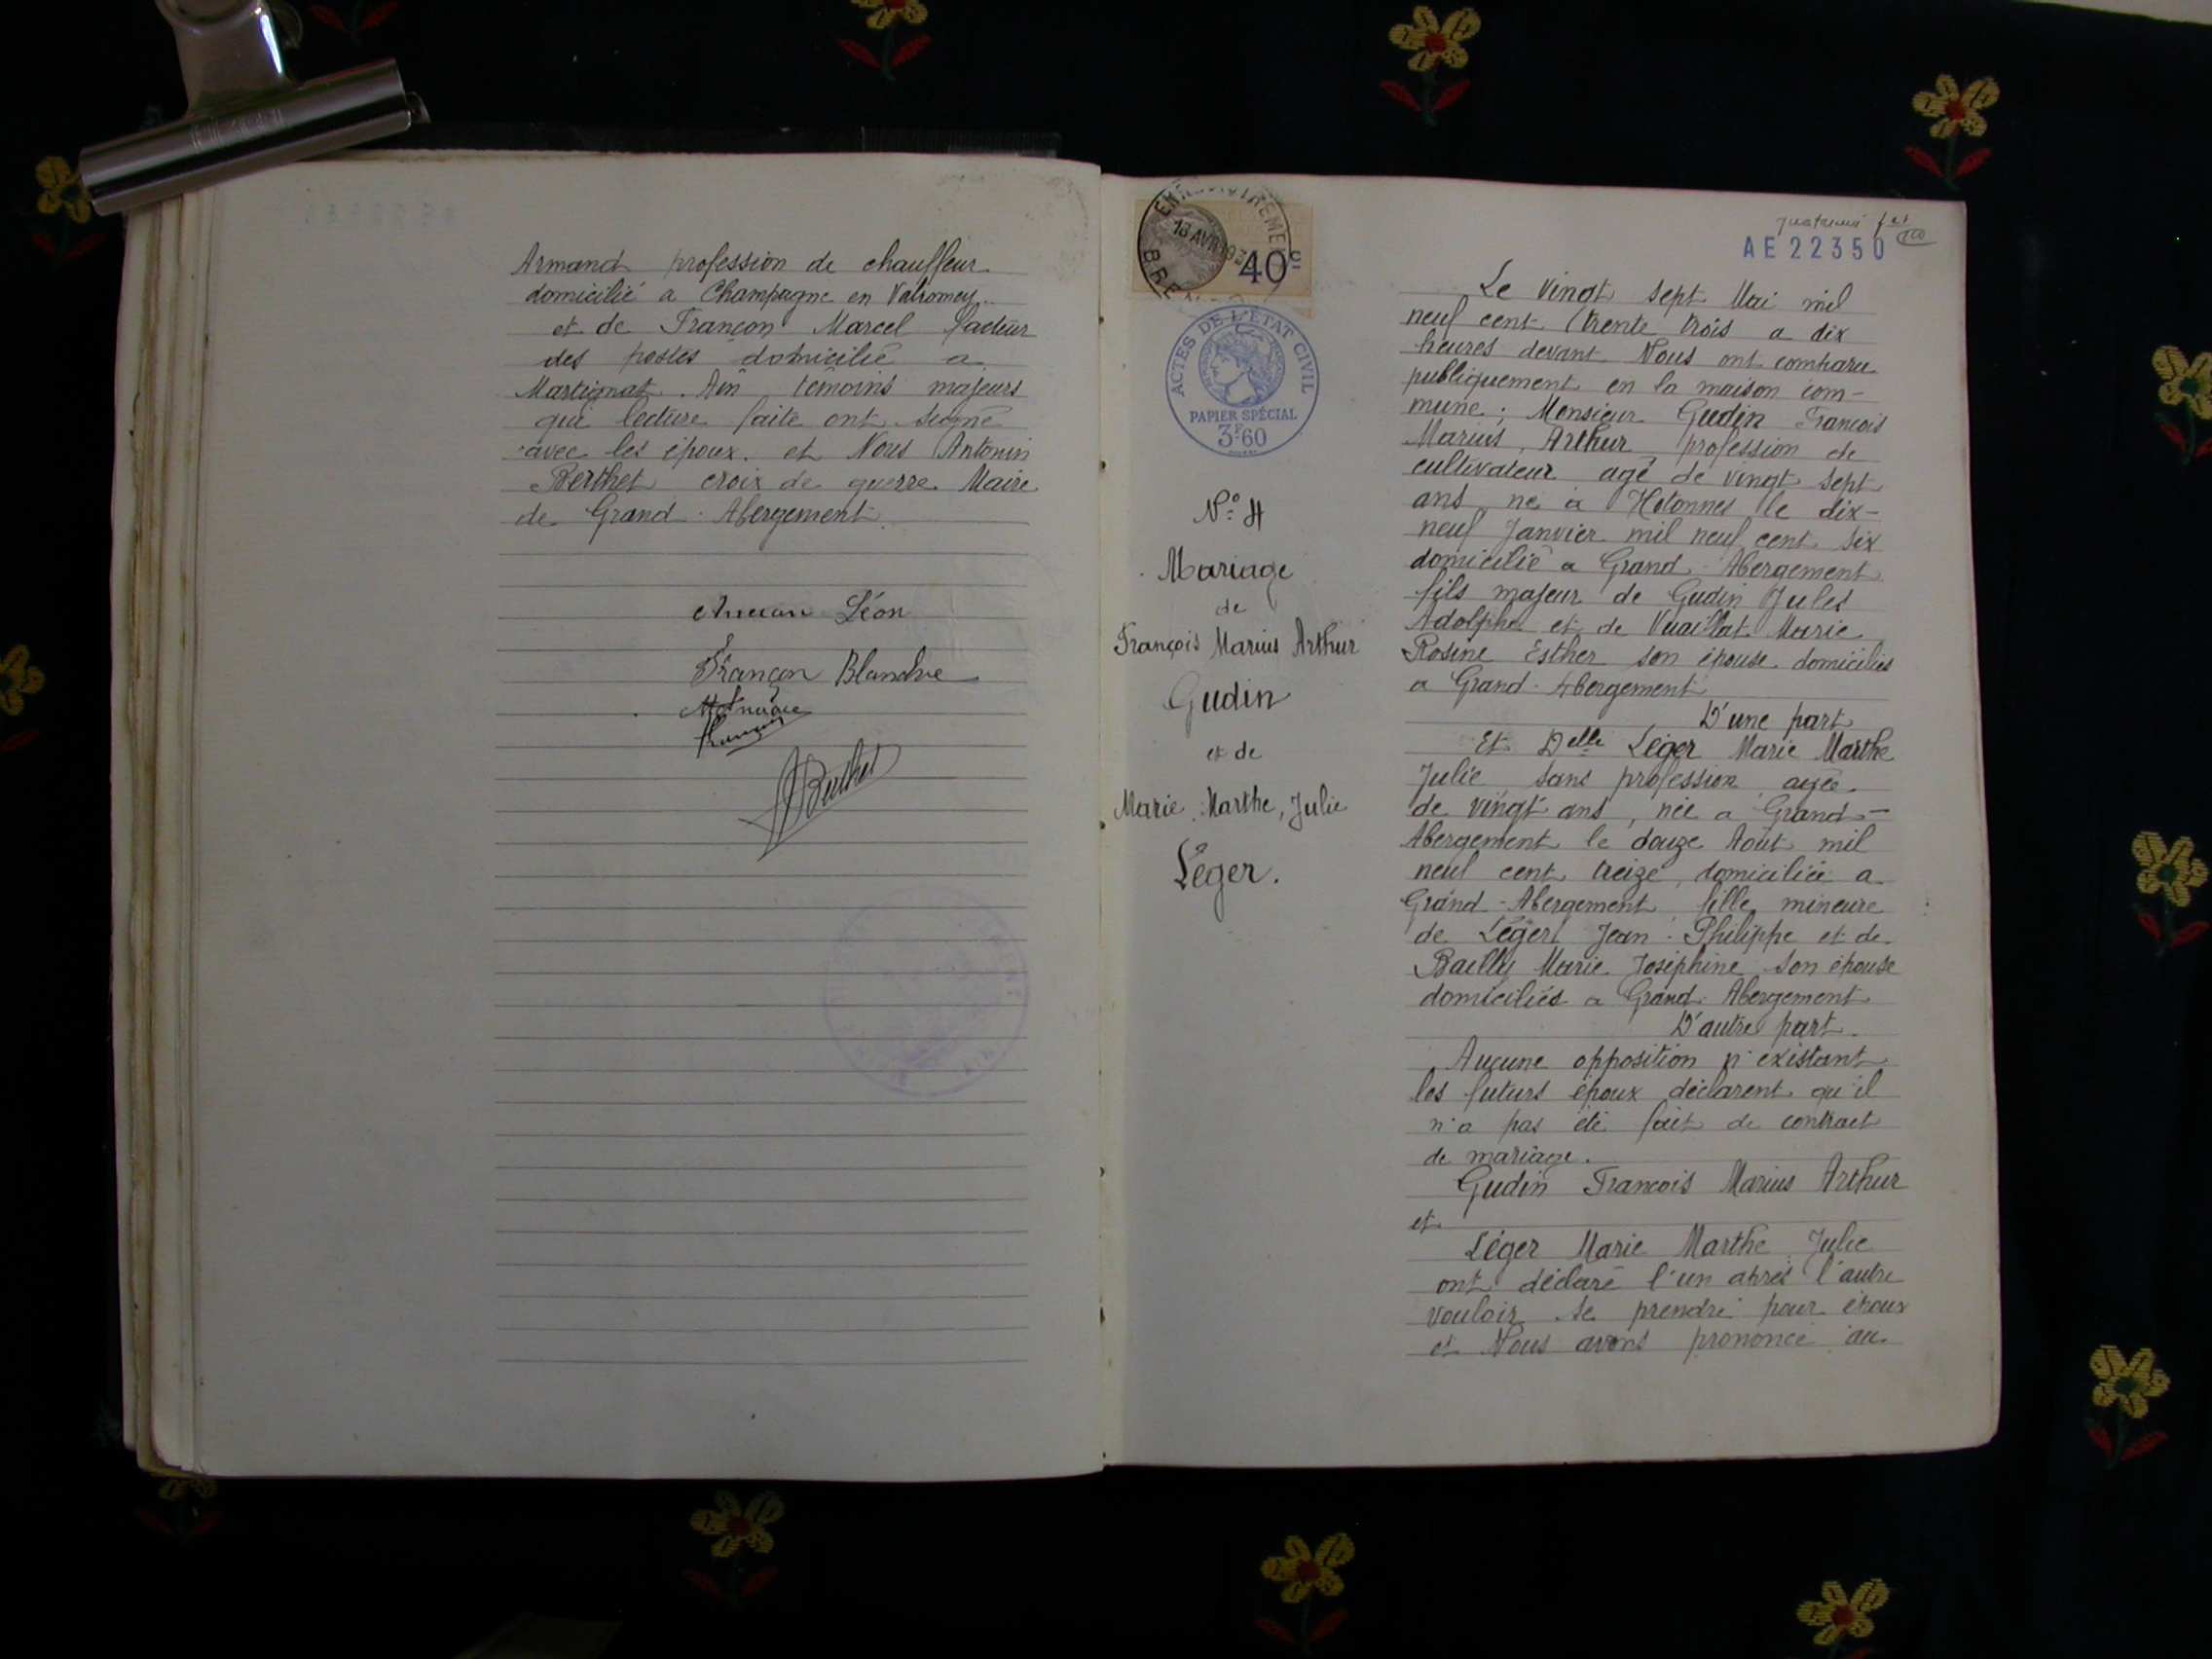 Armand profession de chauffeur
domicilié a Champagne en Valromey.
et de Françon Marcel facteur
des postes domicilié a
Martignat. Ain témoins majeurs
qui lecture faite ont signé
avec les époux. et Nous Antonin
Berthet croix de guerre. Maire
de Grand-Abergement
Léon
Françon Blanche
françon
ABerthet
ENREGISTREMENT
13 AVR
40c
ACTES DE L'ÉTAT CIVIL
PAPIER SPÉCIAL
3F60
N° 4
Mariage
de
François Marius Arthur
Gudin
et de
Marie, Marthe, Julie
Léger.
AE22350
Le vingt sept Mai mil
neuf cent trente trois a dix
heures devant Nous ont comparu
publiquement en la maison com-
mune; Monsieur Gudin François
Marius, Arthur profession de
cultivateur agé de vingt sept
ans né à Hotonnes le dix-
neuf Janvier mil neuf cent six
domicilié a Grand-Abergement
fils majeur de Gudin Jules
Adolphe et de Vuaillat Marie
Rosine Esther son épouse domiciliés
a Grand-Abergement
D'une part
Et Delle Léger Marie Marthe
Julie sans profession agée
de vingt ans, née a Grand-
Abergement le douze Août mil
neuf cent treize, domiciliée a
Grand-Abergement fille mineure
de Léger Jean-Philippe et de
Bailly Marie Joséphine son épouse
domiciliés a Grand-Abergement
D'autre part.
Aucune opposition n'existant
les futurs époux déclarent qu'il
n'a pas été fait de contract
de mariage.
Gudin François Marius Arthur
et
Léger Marie Marthe Julie
ont déclaré l'un après l'autre
vouloir se prendre pour époux
et Nous avons prononcé au